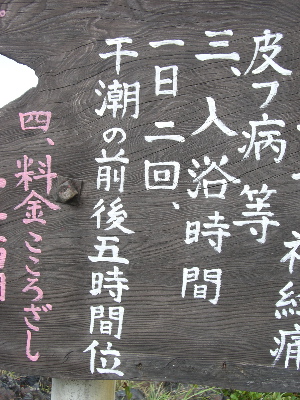 神経痛
皮フ病等
三、入浴時間
一日二回、
干潮の前後五時間位
四、料金こころざし